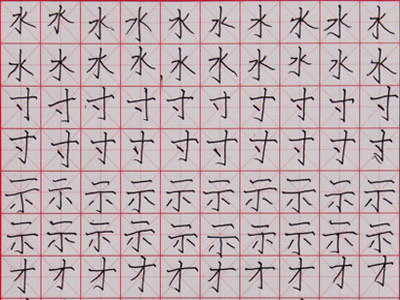 水水水水水水水水水水
水水水水水水水水水水
寸寸寸寸寸寸寸寸寸寸
寸寸寸寸寸寸寸寸寸寸
示示示示示示示示示示
示示示示示示示示示示
才才才才才才才才才才